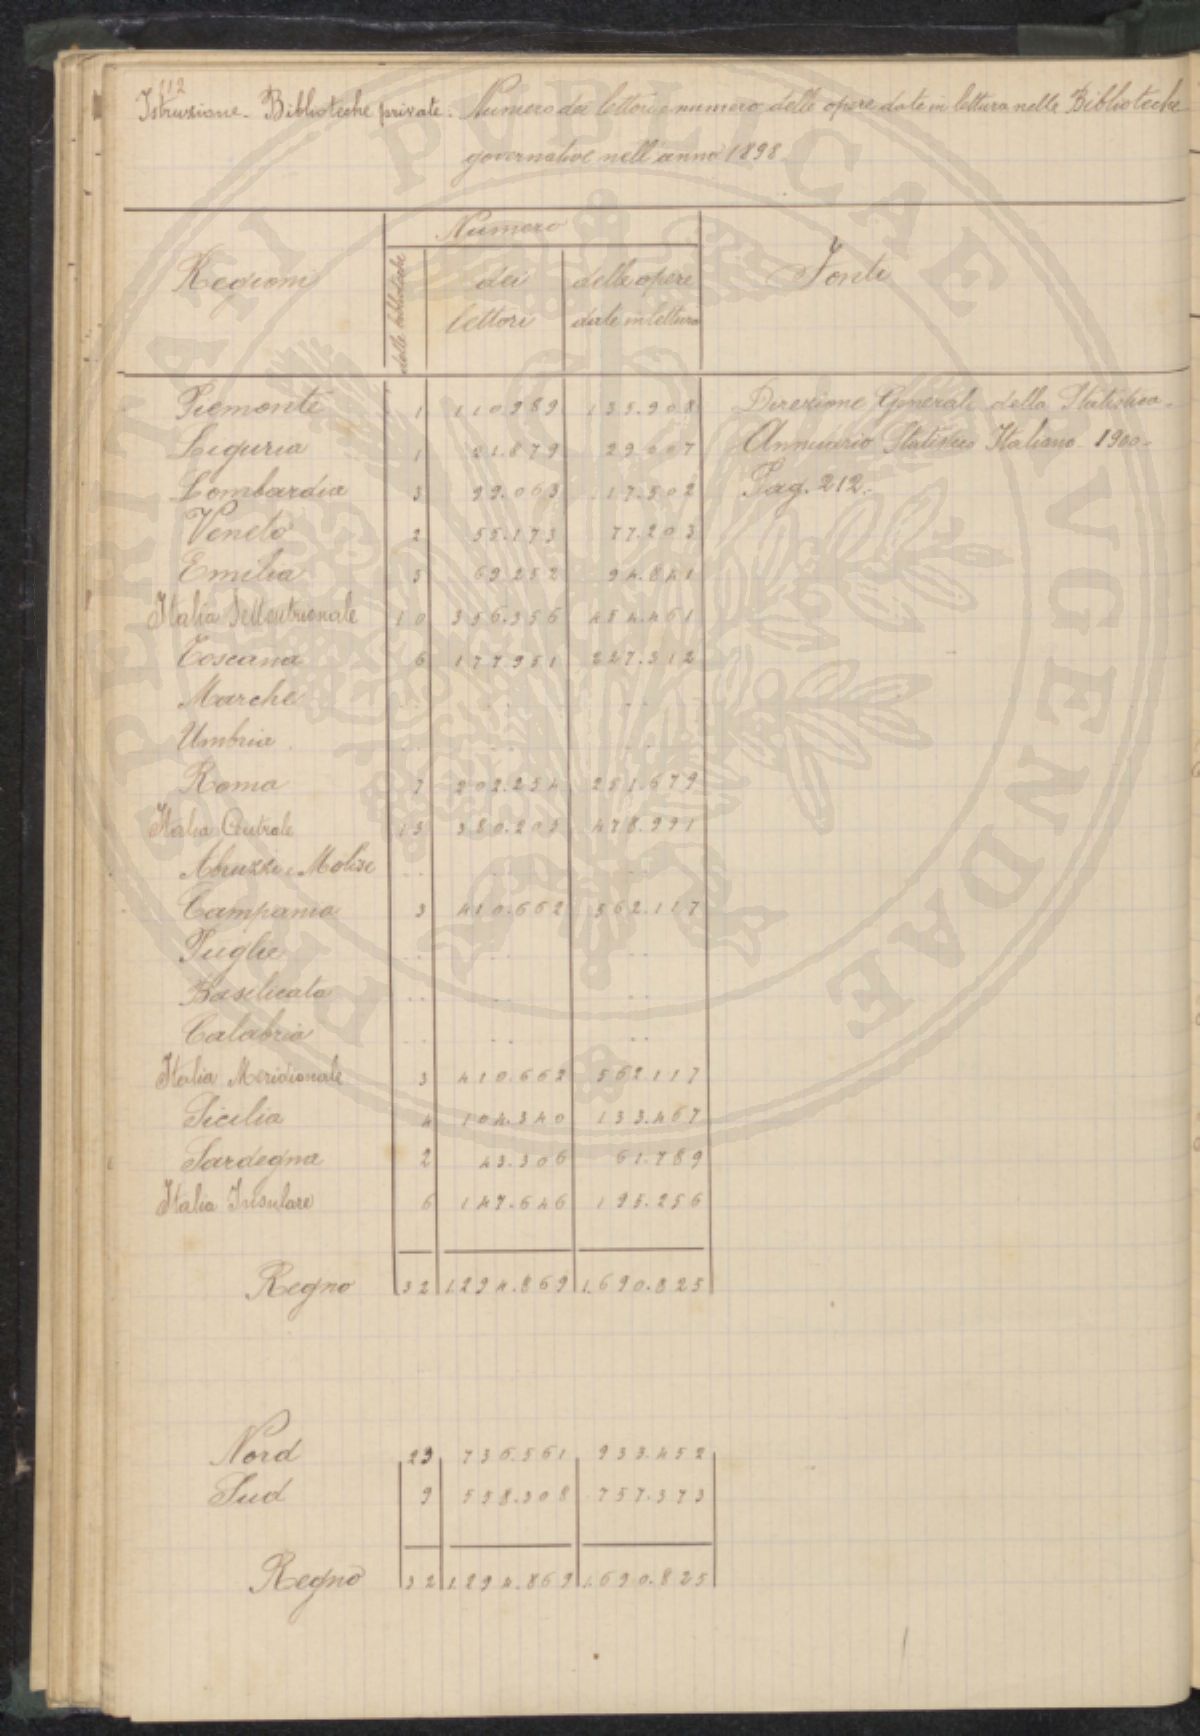 112
Istruzione - Biblioteche private. Numero dei lettori e numero delle opere date in lettura nelle Biblioteche
governative nell'anno 1898
Numero
Regioni delle biblioteche dei lettori delle opere date in lettura Fonti
Piemonte 1 110.989 135.908 Direzione Generale della Statistica -
Liguria 1 21.879 29.007 Annuario Statistico Italiano - 1900 -
Lombardia 3 99.063 117.502 Pag. 212.-
Veneto 2 55.173 77.203
Emilia 3 69.252 94.841
Italia Settentrionale 10 356.356 454.461
Toscana 6 177.951 227.312
Marche .. .. ..
Umbria .. .. ..
Roma 7 202.254 251.679
Italia Centrale 13 380.205 478.991
Abruzzi e Molise .. .. ..
Campania 3 410.662 562.117
Puglie .. .. ..
Basilicata .. .. ..
Calabria .. .. ..
Italia Meridionale 3 410.662 562.117
Sicilia 4 104.340 133.467
Sardegna 2 43.306 61.789
Italia Insulare 6 147.646 195.256
Regno 32 1.294.869 1.690.825
Nord 23 736.561 933.452
Sud 9 558.308 757.373
Regno 32 1.294.869 1.690.825
PROSPERITATI PUBLICAE AVGENDAE